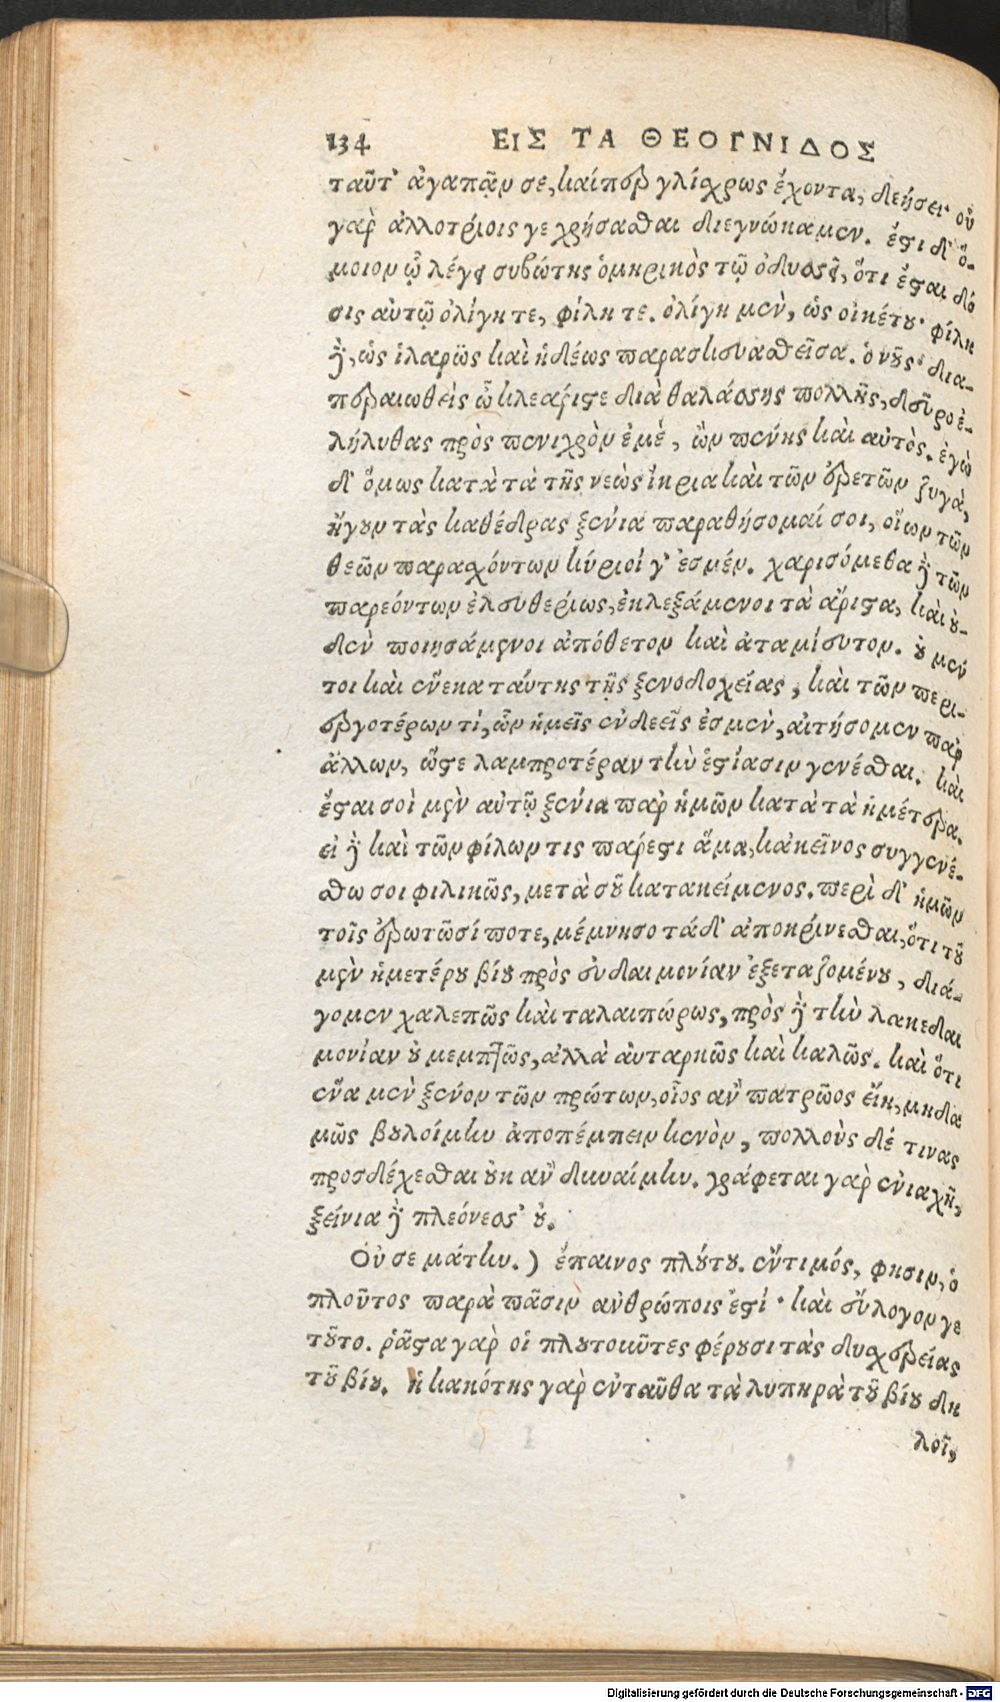 134 ΕΙΣ ΤΑ ΘΕΟΓΝΙΔΟΣ
ταῦτ' ἀγαπᾷν σε, καίπερ γλίσχρως ἔχοντα, δεήσει· οὐ
γὰρ ἀλλοτρίοις γε χρήσασθαι διεγνώκαμεν. ἔστι δ' ὅ-
μοιον ᾧ λέγει συβώτης ὁμηρικὸς τῷ ὀδυσσεῖ, ὅτι ἔσται δό
σις αὐτῷ ὀλίγη τε, φίλη τε. ὀλίγη μὲν, ὡς οἰκέτου· φίλη
δὲ, ὡς ἱλαρῶς καὶ ἡδέως παρασκευασθεῖσα. ὁ νοῦς· δια-
περαιωθεὶς ὦ κλεάριστε διὰ θαλάσσης πολλῆς, δεῦρο ἐ-
λήλυθας πρὸς πενιχρὸν ἐμὲ, ὢν πένης καὶ αὐτὸς. ἐγὼ
δ' ὅμως κατὰ τὰ τῆς νεὼς ἴκρια καὶ τῶν ἐρετῶν ζυγὰ,
ἤγουν τὰς καθέδρας ξένια παραθήσομαί σοι, οἵων τῶν
θεῶν παρασχόντων κύριοί γ' ἐσμέν. χαρισόμεθα δὲ τῶν
παρεόντων ἐλευθερίως, ἐκλεξάμενοι τὰ ἄριστα, καὶ οὐ-
δὲν ποιησάμενοι ἀπόθετον καὶ ἀταμίευτον. οὐ μέν
τοι καὶ ἕνεκα ταύτης τῆς ξενοδοχείας, καὶ τῶν περι-
εργοτέρων τὶ, ὧν ἡμεῖς ἐνδεεῖς ἐσμὲν, αἰτήσομεν παρ
ἄλλων, ὥστε λαμπροτέραν τὴν ἑστίασιν γενέσθαι. καὶ
ἔσται σοὶ μὲν αὐτῷ ξένια παρ ἡμῶν κατὰ τὰ ἡμέτερα.
εἰ δὲ καὶ τῶν φίλων τις πάρεστι ἅμα, κἀκεῖνος συγγενέ-
σθω σοι φιλικῶς, μετὰ σοῦ κατακείμενος. περὶ δ' ἡμῶν
τοῖς ἐρωτῶσί ποτε, μέμνησο τάδ' ἀποκρίνεσθαι, ὅτι τοῦ
μὲν ἡμετέρου βίου πρὸς εὐδαιμονίαν ἐξεταζομένου, διά-
γομεν χαλεπῶς καὶ ταλαιπώρως, πρὸς δὲ τὴν λακεδαι
μονίαν οὐ μεμπτῶς, ἀλλὰ αὐταρκῶς καὶ καλῶς. καὶ ὅτι
ἕνα μὲν ξένον τῶν πρώτων, οἷος ἂν πατρῶος εἴη, μηδα
μῶς βουλοίμην ἀποπέμπειν κενὸν, πολλοὺς δέ τινας
προσδέχεσθαι οὐκ ἂν δυναίμην. γράφεται γὰρ ἐνιαχῆ,
ξείνια δὲ πλεόνεσσ' οὐ.
Οὔ σε μάτην.) ἔπαινος πλούτου. ἔντιμός, φησιν, ὁ
πλοῦτος παρὰ πᾶσιν ἀνθρώποις ἐστί· καὶ εὔλογον γε
τοῦτο. ῥᾷστα γὰρ οἱ πλουτοῦντες φέρουσι τὰς δυσχερείας
τοῦ βίου. ἡ κακότης γὰρ ἐνταῦθα τὰ λυπηρὰ τοῦ βίου δη
λοῖ,
Digitalisierung gefördert durch die Deutsche Forschungsgemeinschaft - DFG